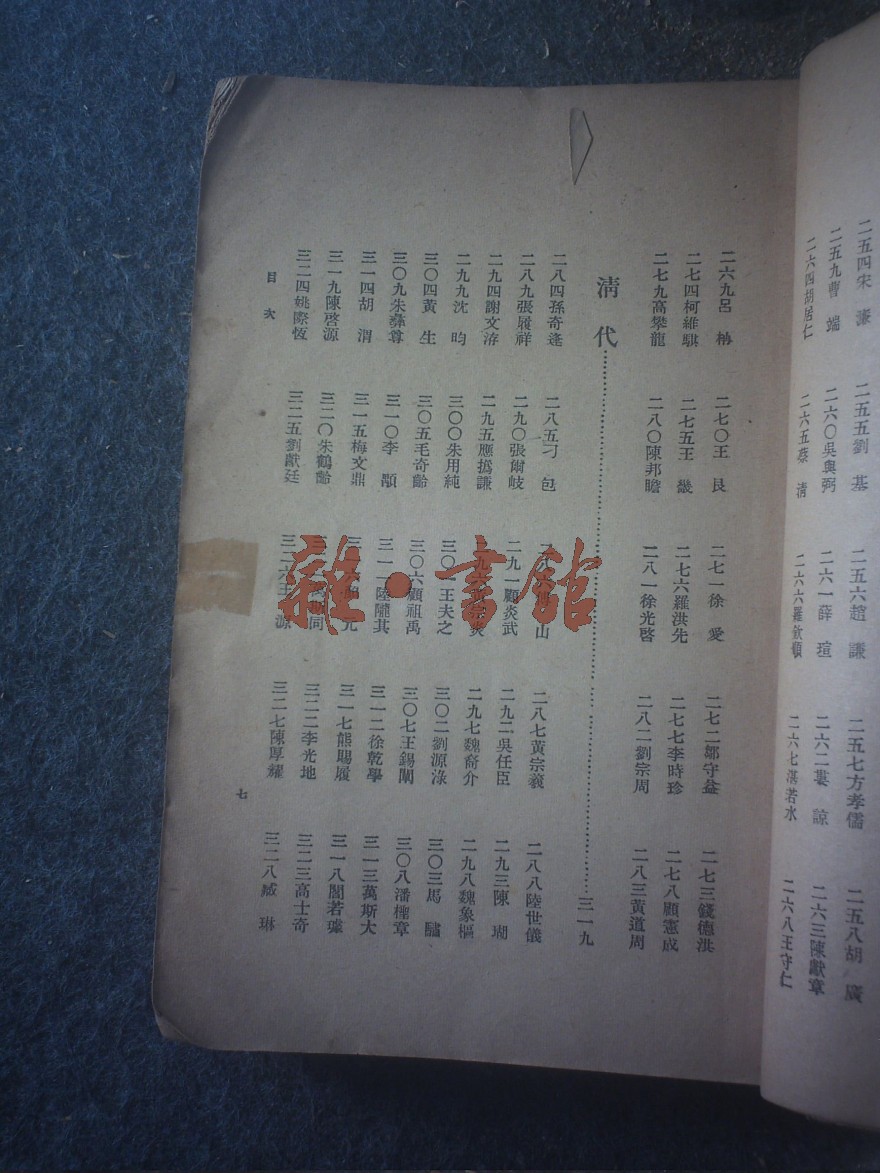 二五四宋 濂 二五五劉 基 二五六趙 謙 二五七方孝儒 二五八胡 廣
二五九曹 端 二六〇吳與弼 二六一薛 瑄 二六二婁 諒 二六三陳獻章
二六四胡居仁 二六五蔡 清 二六六羅欽順 二六七湛若水 二六八王守仁
二六九呂 柟 二七〇王 艮 二七一徐 愛 二七二鄒守益 二七三錢德洪
二七四柯維騏 二七五王 畿 二七六羅洪先 二七七李時珍 二七八顧憲成
二七九高攀龍 二八〇陳邦瞻 二八一徐光啓 二八二劉宗周 二八三黃道周
清 代……三一九
二八四孫奇逢 二八五刁 包 山 二八七黃宗羲 二八八陸世儀
二八九張履祥 二九〇張爾岐 二九一顧炎武 二九二吳任臣 二九三陳 瑚
二九四謝文洊 二九五應撝謙 炎 二九七魏裔介 二九八魏象樞
二九九沈 昀 三〇〇朱用純 三〇一王夫之 三〇二劉源淥 三〇三馬 驌
三〇四黃 生 三〇五毛奇齡 三〇六顧祖禹 三〇七王錫闡 三〇八潘檉章
三〇九朱彝尊 三一〇李 顒 三一一陸隴其 三一二徐乾學 三一三萬斯大
三一四胡 渭 三一五梅文鼎 元 三一七熊賜履 三一八閻若璩
三一九陳啓源 三二〇朱鶴齡 斯同 三二二李光地 三二三高士奇
三二四姚際恆 三二五劉獻廷 三二六王 源 三二七陳厚耀 三二八臧 琳
目 次
七
雜·書館